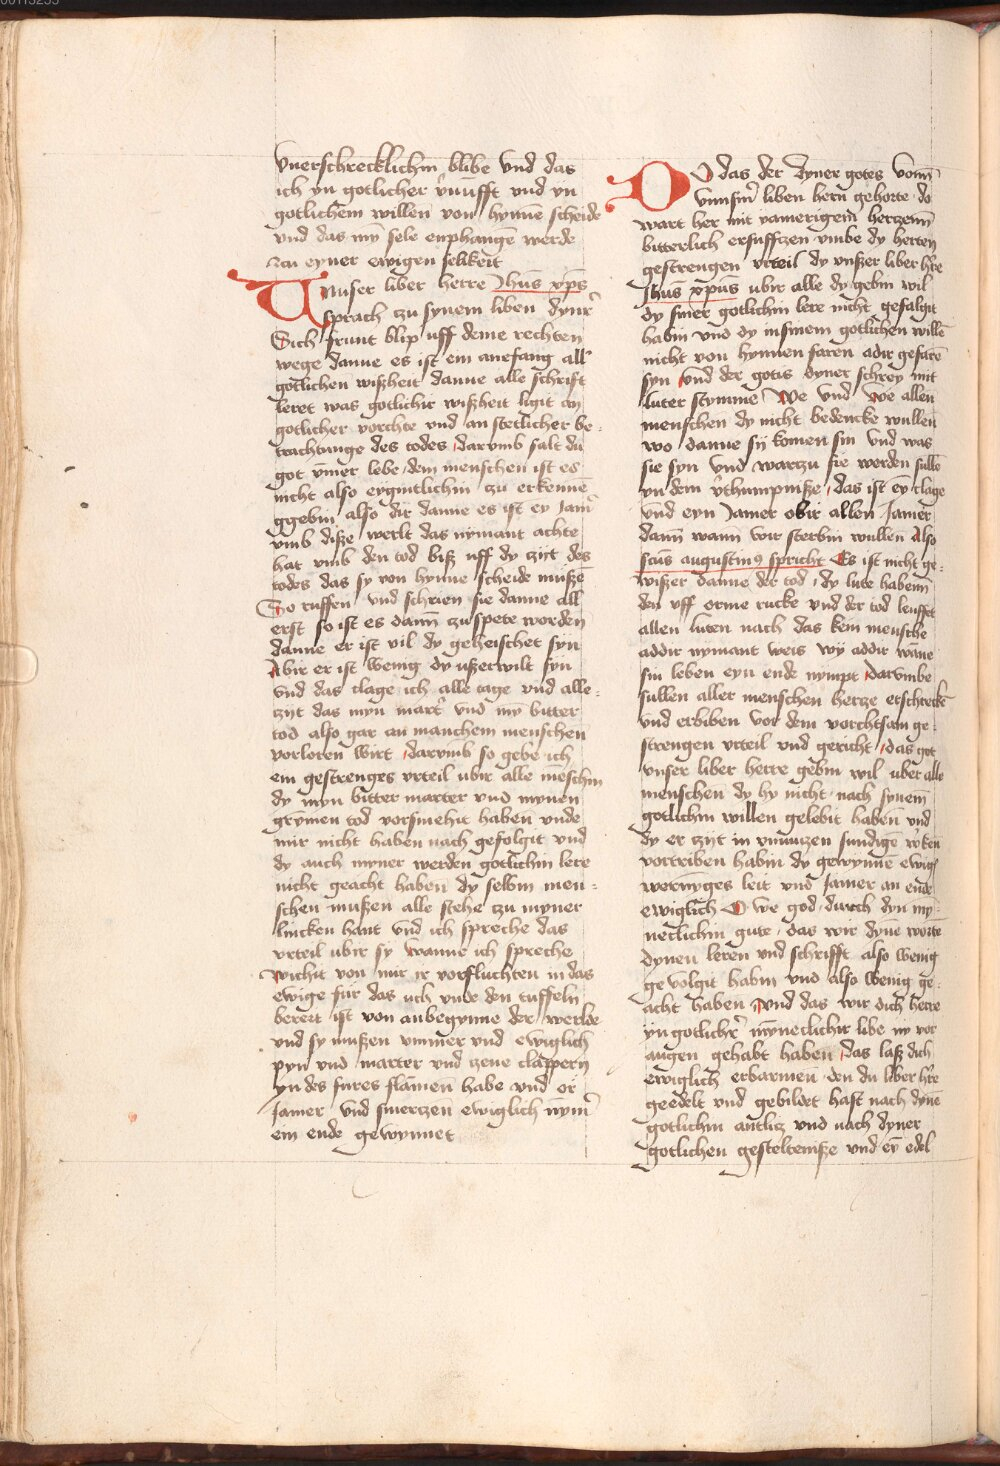 vnerschrecklichin blibe vnd das
ich yn gotlicher v̄nūfft vnd yn
gotlichem willen von hynne scheide
vnd das my̅ sele enphangē werde
zcu eyner ewigen selikeit
Unser liber herre Jhūs xp̄s
sprach zu synem liben dynr̄
Sich frunt blip uff deme rechten
wege danne es ist ein anefang all'
gotlichen wißheit danne alle schrift
leret was gotlichir wißheit ligit an
gotlicher vorchte vnd an stetlicher be=
trachtunge des todes darvmb salt du
got ūmer lebe dem menschen ist es
nicht also eygintlichin zu erkennē
ggebin also dir danne es ist ey Jam̄
vmb diße werlt das nymant achte
hat vmb den tod biß uff dy zijt des
todes das sy von hynne scheide mußē
So ruffen vnd schrien sie danne all
erst so ist es dann zu spete worden
danne er ist vil dy geheischet syn
Abir er ist wenig dy ußerwilt syn
vnd das clage ich alle tage vnd alle=
zijt das myn mart' vnd my̅ bitter
tod also gar an manchem menschen
vorloren wirt darvmb so gebe ich
ein gestrenges vrteil ubir alle mēschin
dy myn bitter marter vnd mynen
grymen tod vorsmehit haben vnde
mir nicht haben nach gefolgit vnd
dy auch myner werden gotlichin lere
nicht geacht haben dy selbin men=
schen mußen alle stehe zu myner
lincken hant vnd ich spreche das
vrteil ubir sy wanne ich spreche
wichit von mir ir vorfluchten in das
ewige fur das uch vnde den tuffeln
bereit ist von anbegynne der werlde
vnd sy mußen ummer vnd ewiglich
pyn vnd marter vnd zene clappern
yn des fures flamen habe vnd or
Jamer vnd smertzen ewiglich nȳm̄
ein ende gewynnet
DO das der dyner gotes vonn
vnnsm̄ liben hern gehorte do
wart her mit yamerigem hertzenn
bitterlich ersufftzen vmbe dy herten
gestrengen vrteil dy vnßer liber h're
Jhūs xpūs ubir alle dy gebin wil
dy siner gotlichin lere nicht gefolgit
habin vnd dy in sinem gotlichen willē
nicht von hynnen faren adir gefarē
syn vnd der gotis dyner schrey mit
luter stymme We vnd we allen
menschen dy nicht bedencke wullen
wo danne sij komen sin vnd was
sie syn vnd warzu sie werden sullē
yn dem v'thumpniße das ist ey clage
vnd eyn Jamer obir allen Jamer
dann wann wir sterbin wullen Also
scūs augustin9 spricht Es ist nicht ge=
wißer danne der tod dy lute habenn
den uff orme rucke vnd der tod leufft
allen luten nach das kein mensche
addir nymant weis wy addir wāne
sin leben eyn ende nympt darvmbe
sullen aller menschen hertze erschreckē
vnd erbiben vor dem vorchtsam ge=
strengen vrteil vnd gericht das got
vnser liber herre gebin wil uber alle
menschen dy hy nicht nach synem
gotlichin willen gelebit haben vnd
dy er zijt in vnnutzen sundigē w'cken
vortriben habin dy gewynnē ewig
wernyges leit vnd Jamer an ende
ewiglich O we god durch dyn my̅=
neclichin gute das wir dynē worte
dynen leren vnd schrifft also wenig
ge volgit habin vnd also wenig ge=
acht haben vnd das wir dich herre
yn gotlichr̄ mynneclichir libe ny vor
augen gehabt haben das laß dich
ewiglich erbarmen den du liber h're
geedelt vnd gebildet hast nach dynē
gotlichin antlitz vnd nach dyner
gotlichen gestelteniße vnd ey edel